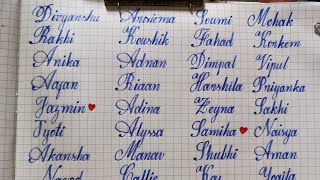 Divyanshu Ansioma Soumi Mehak
Rakhi Koushik Fahad Konkom
Anika Adnan Dimpal Vipul
Aayan Riaan Harshita Priyanka
Jazmin Adina Zeyna Sakhi
Jyoti Alyssa Samiha Naisya
Akansha Manav Shubhi Aman
Callie Kay Yogita